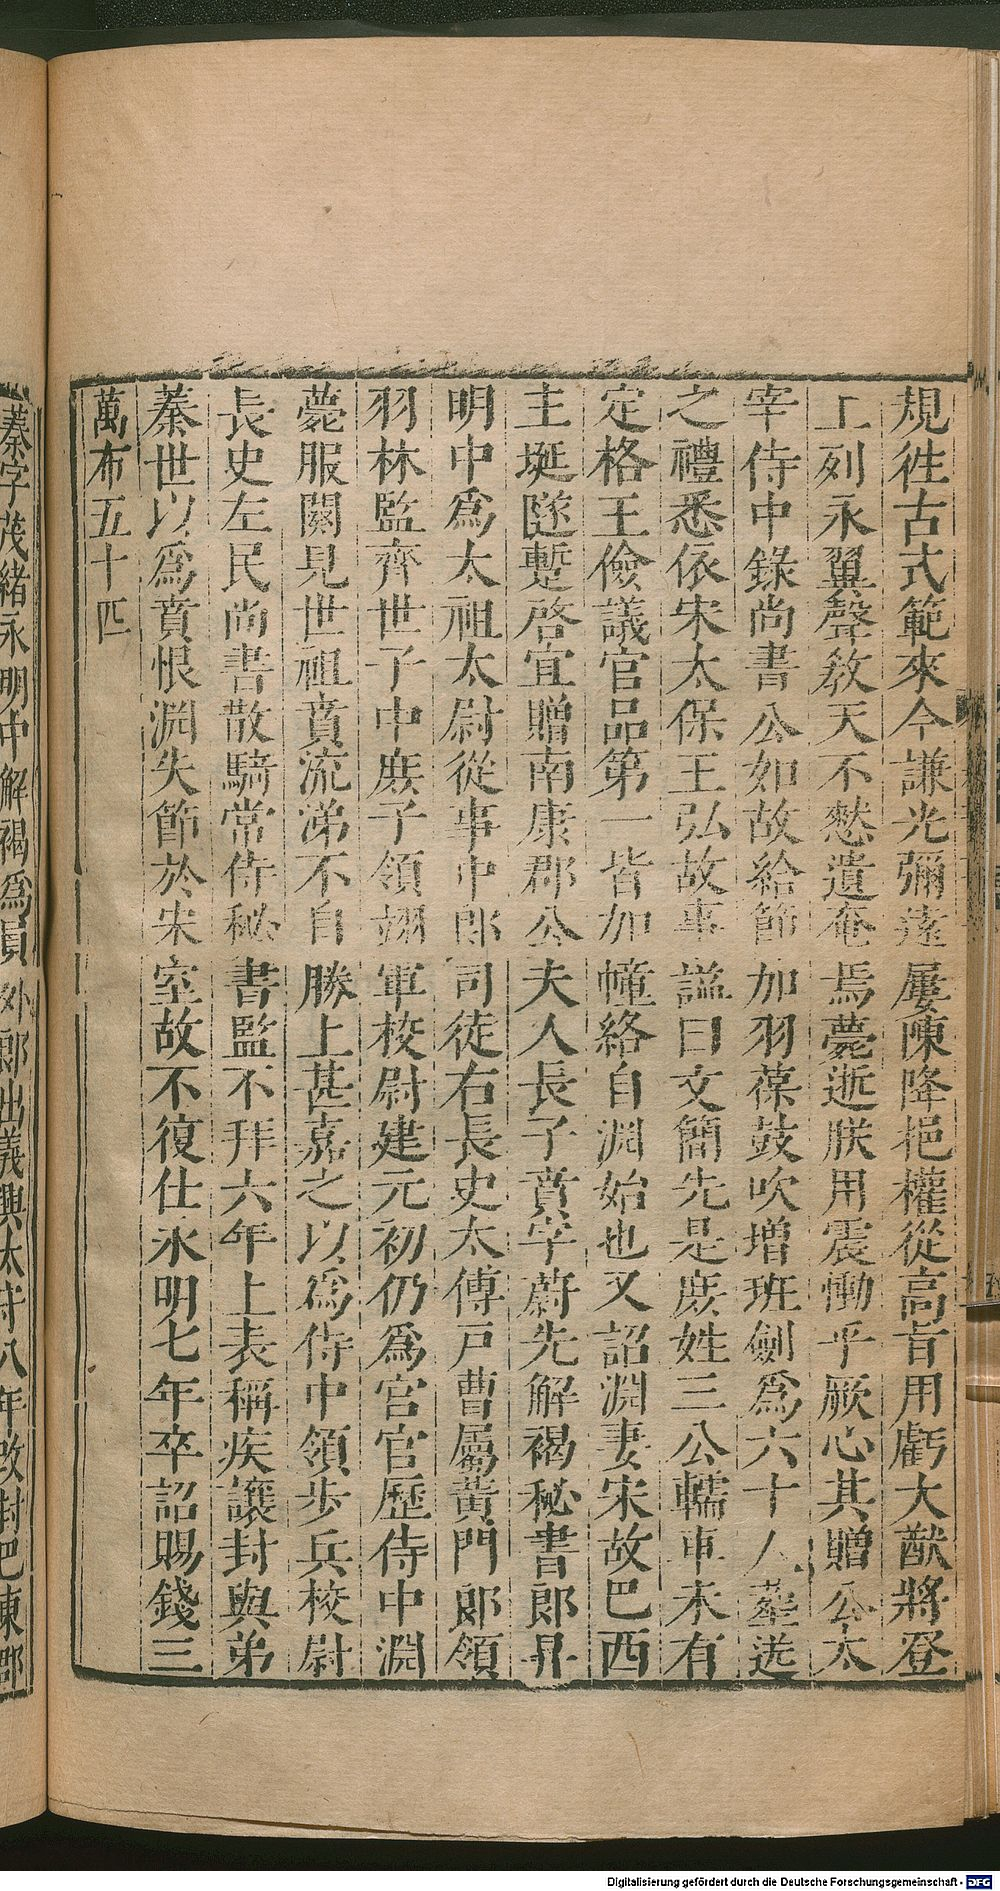 規徃古式範來今謙光彌遠屢陳降挹權從高旨用虧大猷將登
上列永翼聲敎天不憗遺奄焉薨逝朕用震慟乎厥心其贈公太
宰侍中錄尚書公如故給節加羽葆鼓吹増班劍爲六十人葬送
之禮悉依宋太保王弘故事謚曰文簡先是庶姓三公轜車未有
定格王儉議官品第一皆加幢絡自淵始也又詔淵妻宋故巴西
主埏隧蹔啓宜贈南康郡公夫人長子賁字蔚先解褐秘書郎昇
明中爲太祖太尉從事中郎司徒右長史太傅戶曹屬黃門郎領
羽林監齊世子中庶子領翊軍校尉建元初仍爲宮官歷侍中淵
薨服闋見世祖賁流涕不自勝上甚嘉之以爲侍中領步兵校尉
長史左民尚書散騎常侍秘書監不拜六年上表稱疾讓封與弟
蓁世以爲賁恨淵失節於宋室故不復仕永明七年卒詔賜錢三
萬布五十匹
蓁字茂緒永明中解褐爲員外郎出義興太守八年改封巴東郡
Digitalisierung gefördert durch die Deutsche Forschungsgemeinschaft - DFG